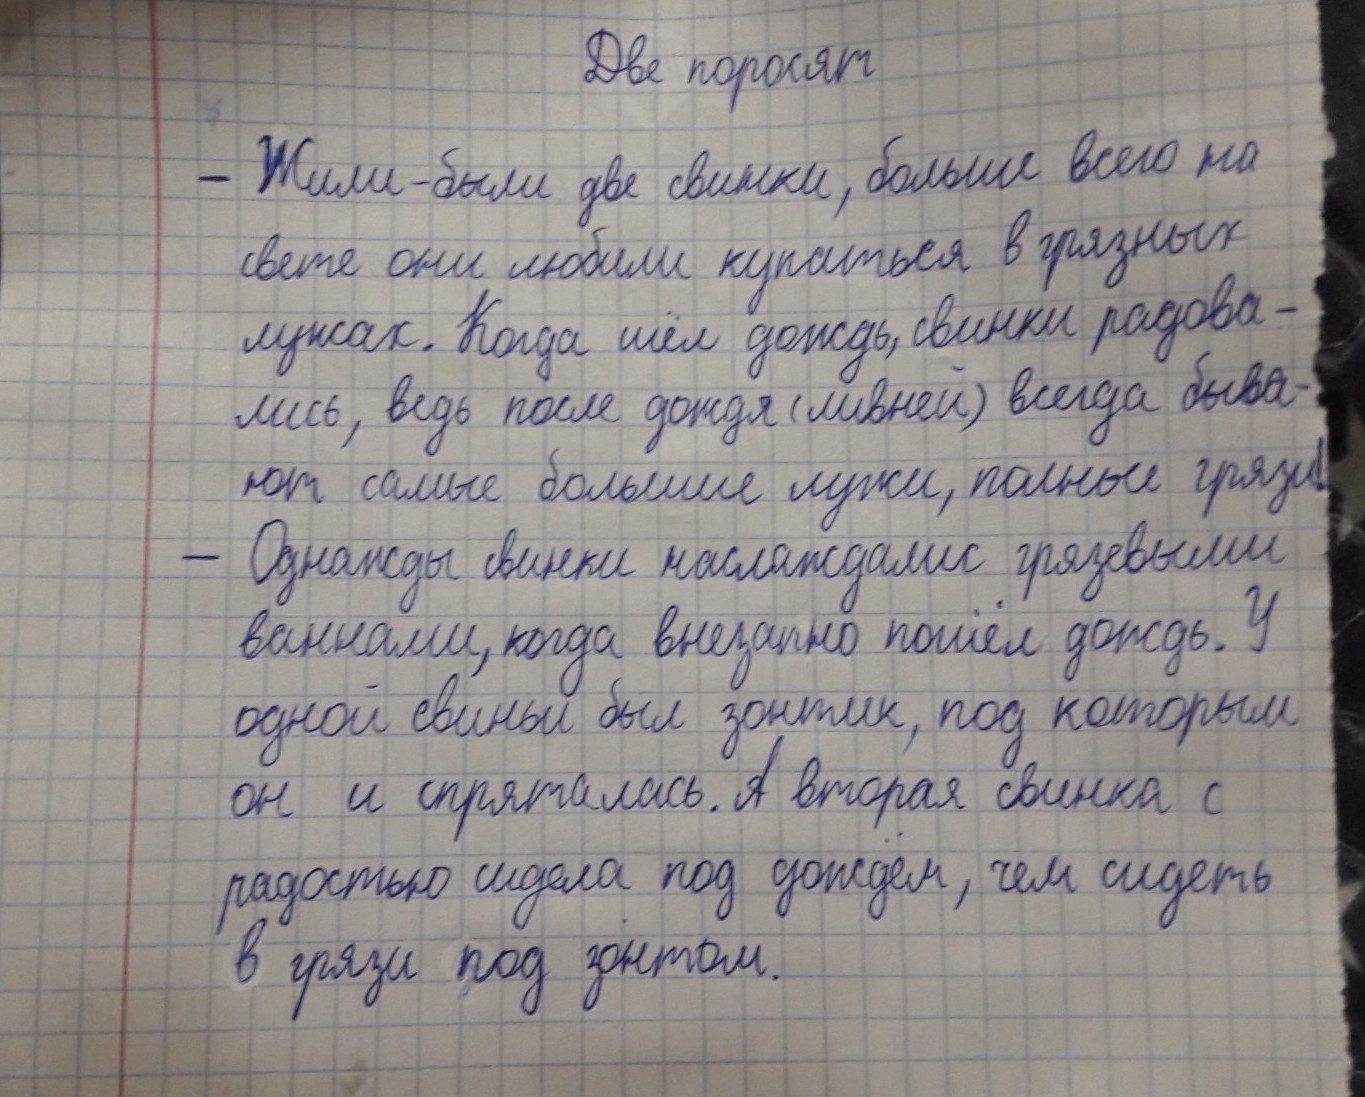 Две поросят
– Жили-были две свинки, больше всего на
свете они любили купаться в грязных
лужах. Когда шёл дождь, свинки радова-
лись, ведь после дождя (ливней) всегда быва-
ют самые большие лужи, полные грязи!
– Однажды свинки наслаждалис грязевыми
ваннами, когда внезапно пошёл дождь. У
одной свиньи был зонтик, под которым
он и спряталась. А вторая свинка с
радостью сидела под дождём, чем сидеть
в грязи под зонтом.